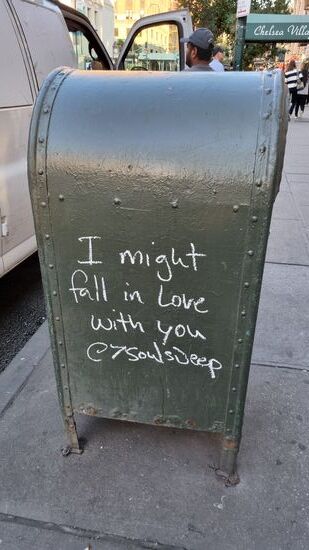 Chelsea Villa
I might
fall in Love
with you
@7soulsDeep